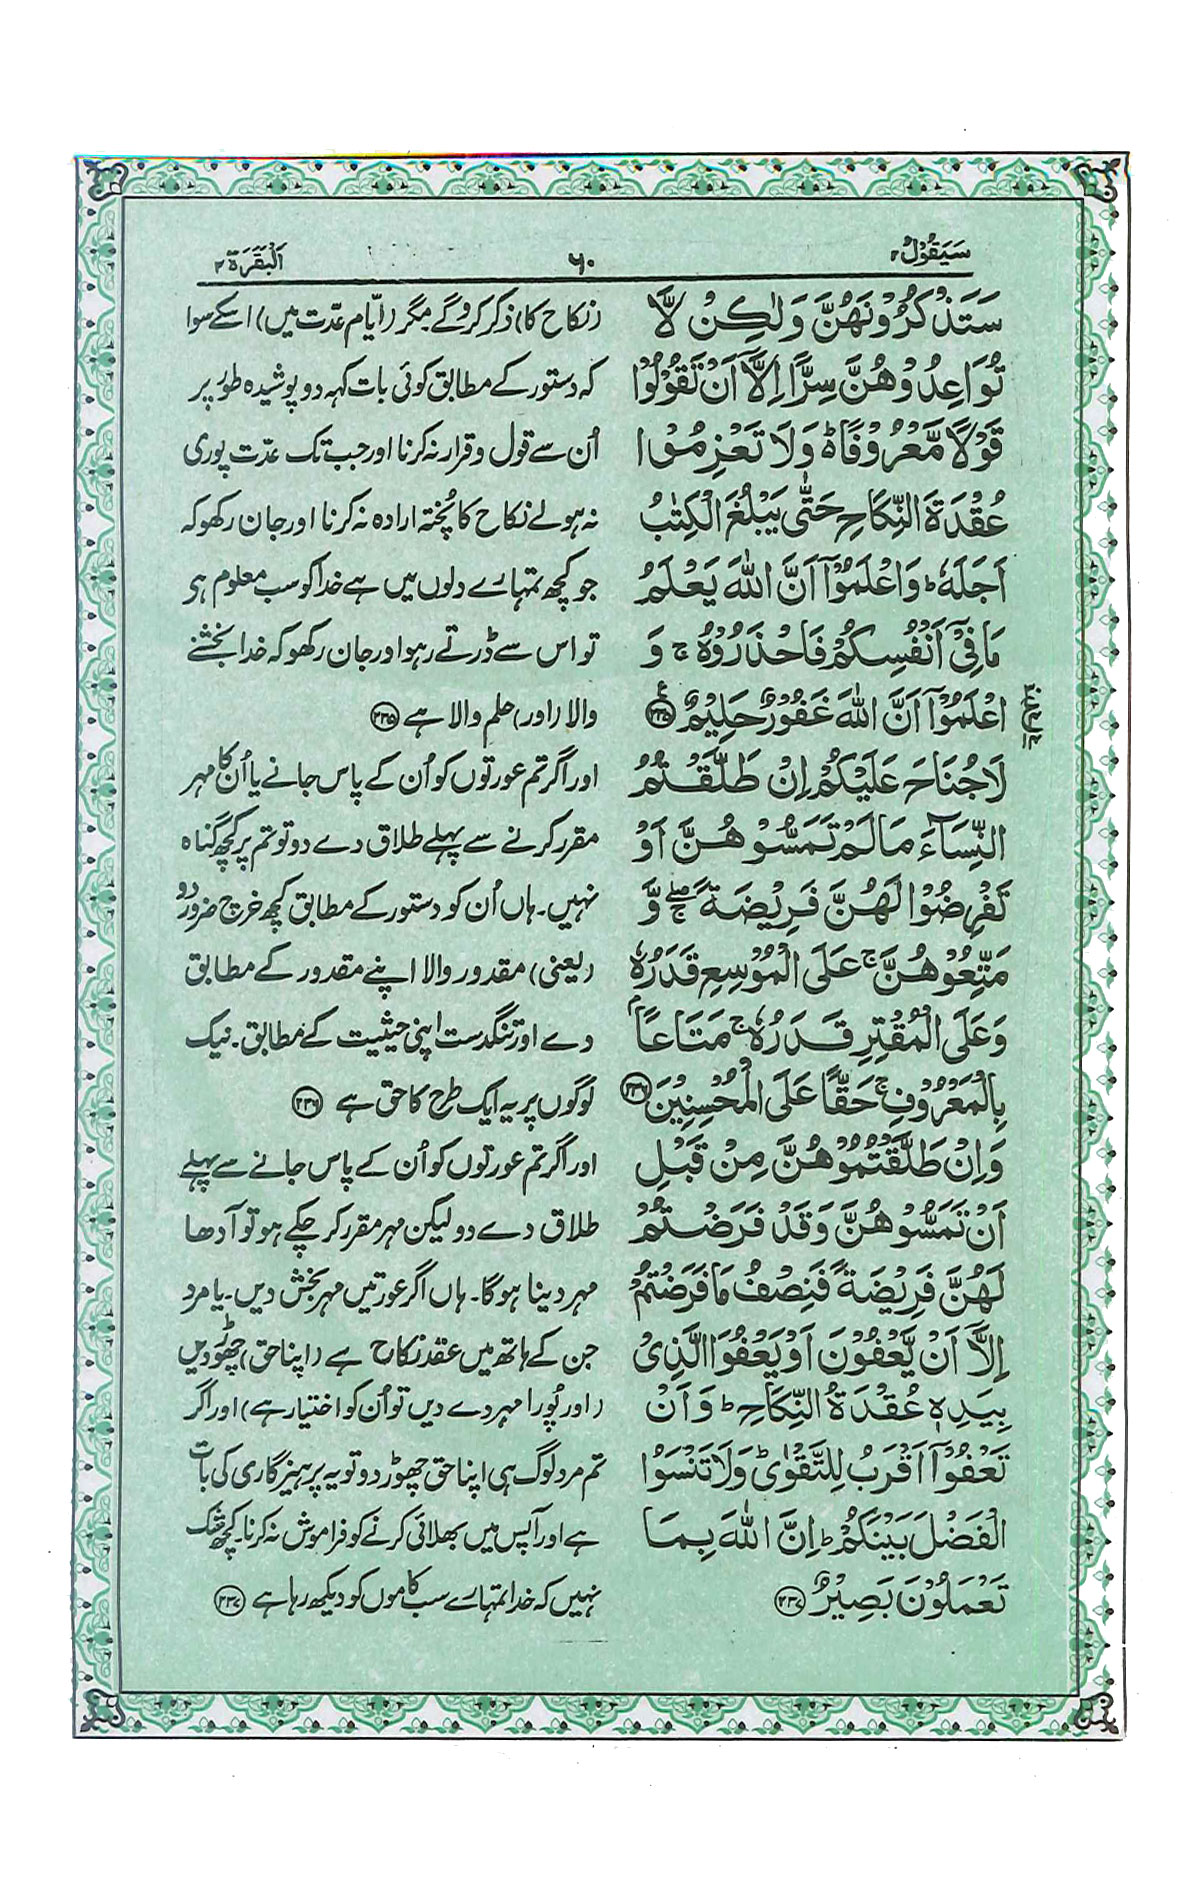 سَيَقُوْلُ ٢
٦٠
اَلْبَقَرَة ٢
سَتَذْكُرُوْنَهُنَّ وَلٰكِنْ لَّا
تُوَاعِدُوْهُنَّ سِرًّا اِلَّآ اَنْ تَقُوْلُوْا
قَوْلًا مَّعْرُوْفًا ؕ وَلَا تَعْزِمُوْا
عُقْدَةَ النِّكَاحِ حَتّٰى يَبْلُغَ الْكِتٰبُ
اَجَلَهٗ ؕ وَاعْلَمُوْٓا اَنَّ اللّٰهَ يَعْلَمُ
مَا فِىْٓ اَنْفُسِكُمْ فَاحْذَرُوْهُ ۚ وَ
اعْلَمُوْٓا اَنَّ اللّٰهَ غَفُوْرٌ حَلِيْمٌ ﴿٢٣٥﴾
لَاجُنَاحَ عَلَيْكُمْ اِنْ طَلَّقْتُمُ
النِّسَآءَ مَالَمْ تَمَسُّوْهُنَّ اَوْ
تَفْرِضُوْا لَهُنَّ فَرِيْضَةً ۖۚ وَّ
مَتِّعُوْهُنَّ ۚ عَلَى الْمُوْسِعِ قَدَرُهٗ
وَعَلَى الْمُقْتِرِ قَدَرُهٗ ۚ مَتَاعًاۢ
بِالْمَعْرُوْفِ ۚ حَقًّا عَلَى الْمُحْسِنِيْنَ ﴿٢٣٦﴾
وَاِنْ طَلَّقْتُمُوْهُنَّ مِنْ قَبْلِ
اَنْ تَمَسُّوْهُنَّ وَقَدْ فَرَضْتُمْ
لَهُنَّ فَرِيْضَةً فَنِصْفُ مَا فَرَضْتُمْ
اِلَّآ اَنْ يَّعْفُوْنَ اَوْ يَعْفُوَا الَّذِىْ
بِيَدِهٖ عُقْدَةُ النِّكَاحِ ؕ وَاَنْ
تَعْفُوْٓا اَقْرَبُ لِلتَّقْوٰى ؕ وَلَا تَنْسَوُا
الْفَضْلَ بَيْنَكُمْ ؕ اِنَّ اللّٰهَ بِمَا
تَعْمَلُوْنَ بَصِيْرٌ ﴿٢٣٧﴾
(نکاح کا) ذکر کرو گے۔ مگر (ایّام عدّت میں) اسکے سوا
کہ دستور کے مطابق کوئی بات کہہ دو پوشیدہ طور پر
اُن سے قول و قرار نہ کرنا اور جب تک عدّت پوری
نہ ہولے نکاح کا پُختہ ارادہ نہ کرنا اور جان رکھو کہ
جو کچھ تمہارے دلوں میں ہے خدا کو سب معلوم ہی
تو اس سے ڈرتے رہو اور جان رکھو کہ خدا بخشنے
والا (اور) حلم والا ہے ﴿٢٣٥﴾
اور اگر تم عورتوں کو اُن کے پاس جانے یا اُن کا مہر
مقرر کرنے سے پہلے طلاق دے دو تو تم پر کچھ گناہ
نہیں۔ ہاں اُن کو دستور کے مطابق کچھ خرچ ضرور دو
(یعنی) مقدور والا اپنے مقدور کے مطابق
دے اور تنگدست اپنی حیثیت کے مطابق۔ نیک
لوگوں پر یہ ایک طرح کا حق ہے ﴿٢٣٦﴾
اور اگر تم عورتوں کو اُن کے پاس جانے سے پہلے
طلاق دے دو لیکن مہر مقرر کر چکے ہو تو آدھا
مہر دینا ہوگا۔ ہاں اگر عورتیں مہر بخش دیں۔ یا مرد
جن کے ہاتھ میں عقد نکاح ہے (اپنا حق) چھوڑ دیں
(اور پُورا مہر دے دیں تو اُن کو اختیار ہے) اور اگر
تم مرد لوگ ہی اپنا حق چھوڑ دو تو یہ پرہیزگاری کی بات
ہے اور آپس میں بھلائی کرنے کو فراموش نہ کرنا۔ کچھ شک
نہیں کہ خدا تمہارے سب کاموں کو دیکھ رہا ہے ﴿٢٣٧﴾